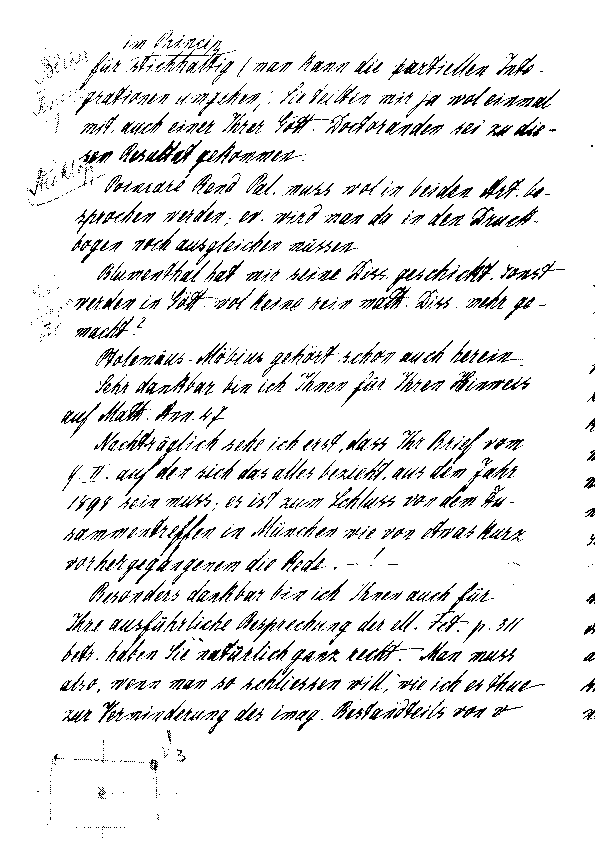 im Princip
für stichhaltig (man kann die partiellen Inte-
grationen umgehen; Sie teilten mir ja wol einmal
mit, auch einer Ihrer Gött. Doctoranden sei zu die-
sem Resultat gekommen.
Poincaré Rend Pal. muss wol in beiden Art. be-
sprochen werden; ev. wird man da in den Druck-
bogen noch ausgleichen müssen
Blumenthal hat mir seine Diss. geschickt. sonst
werden in Gött. wol keine rein math. Diss. mehr ge-
macht?
Ptolemäus-Möbius gehört schon auch herein.
Sehr dankbar bin ich Ihnen für Ihren Hinweis
auf Math. Ann. 47
Nachträglich sehe ich erst, dass Ihr Brief vom
9. II. auf den sich das alles bezieht, aus dem Jahr
1898 sein muss; es ist zum Schluss von dem Zu-
sammentreffen in München wie von etwas kurz
vorhergegangenem die Rede. - ! -
Besonders dankbar bin ich Ihnen auch für
Ihre ausführliche Besprechung der ell. Fct. p. 311
betr. haben Sie natürlich ganz recht. Man muss
also, wenn man so schliessen will, wie ich es thue
zur Verminderung des imag. Bestandteils von v